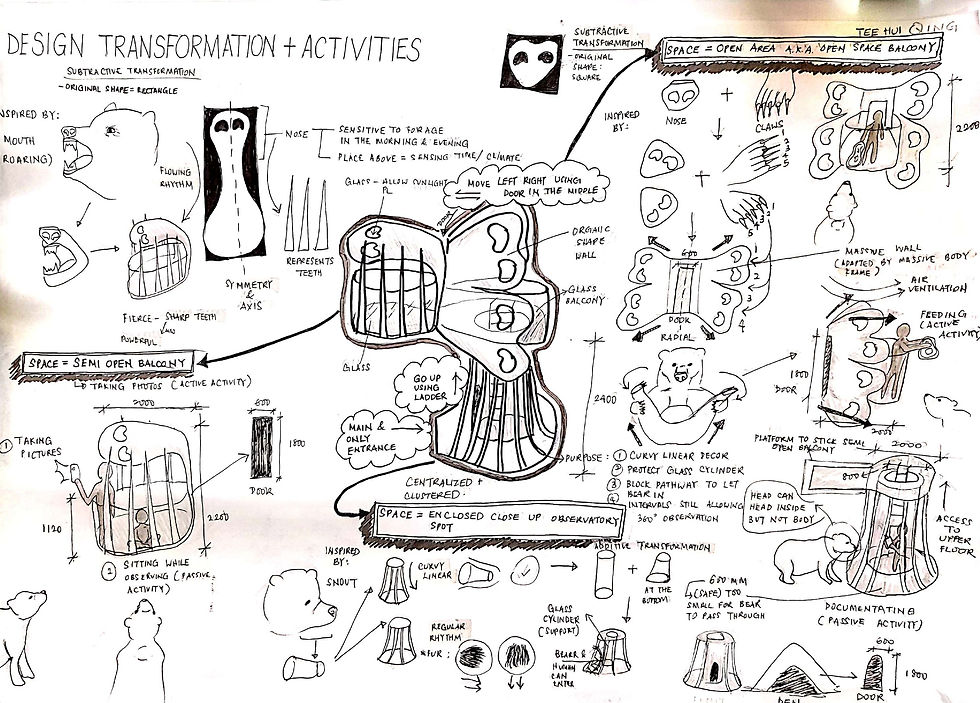 TEE HUI QING
DESIGN TRANSFORMATION + ACTIVITIES
SUBTRACTIVE TRANSFORMATION
- ORIGINAL SHAPE = RECTANGLE
INSPIRED BY:
MOUTH
ROARING)
FLOWING
RHYTHM
NOSE
SENSITIVE TO FORAGE
IN THE MORNING & EVENING
PLACE ABOVE = SENSING TIME / CLIMATE
REPRESENTS
TEETH
SYMMETRY
&
AXIS
FIERCE - SHARP TEETH
POWERFUL
SPACE = SEMI OPEN BALCONY
TAKING PHOTOS (ACTIVE ACTIVITY)
2000
600
1800
DOOR
① TAKING
PICTURES
1120
2200
② SITTING WHILE
OBSERVING (PASSIVE
ACTIVITY)
SUBTRACTIVE
TRANSFORMATION
- ORIGINAL
SHAPE:
SQUARE
SPACE = OPEN AREA A.K.A. OPEN SPACE BALCONY
INSPIRED
BY:
NOSE
+
CLAWS
1
2
3
4
5
+
2200
MOVE LEFT RIGHT USING
DOOR IN THE MIDDLE
GLASS - ALLOW SUNLIGHT
DOOR
ORGANIC
SHAPE
WALL
GLASS
BALCONY
GLASS
GO UP
USING
LADDER
MAIN &
ONLY
ENTRANCE
2400
600
1
2
3
4
DOOR
RADIAL
MASSIVE WALL
(ADAPTED BY MASSIVE BODY
FRAME)
AIR
VENTILATION
FEEDING
(ACTIVE
ACTIVITY)
1800
DOOR
2000
PURPOSE: ① CURVY LINEAR DECOR
② PROTECT GLASS CYLINDER
③ BLOCK PATHWAY TO LET
BEAR IN
④ INTERVALS STILL ALLOWING
360° OBSERVATION
CENTRALIZED +
CLUSTERED.
SPACE = ENCLOSED CLOSE UP OBSERVATORY
SPOT
PLATFORM TO STICK SEMI
OPEN BALCONY
2000
800
HEAD CAN
HEAD INSIDE
BUT NOT BODY
ACCESS
TO
UPPER
FLOOR
DOCUMENTATING
(PASSIVE ACTIVITY)
INSPIRED
BY:
SNOUT
CURVY
LINEAR
REGULAR
RHYTHM
*FUR:
ADDITIVE TRANSFORMATION
+
AT THE
BOTTOM
GLASS
CYLINDER
(SUPPORT)
BEAR &
HUMAN
CAN
ENTER
680 MM
(SAFE) TOO
SMALL FOR BEAR
TO PASS THROUGH
DEN
600
1800
DOOR